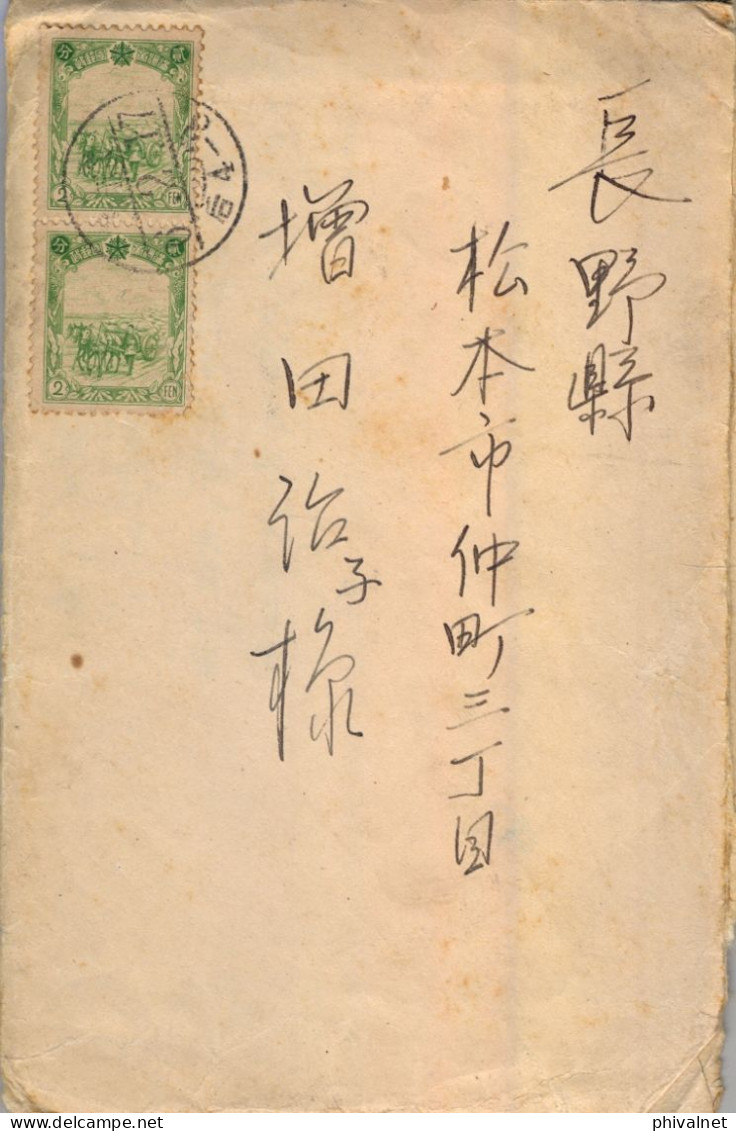 長野縣
松本市仲町三丁目
増田治子様
分
貳
2
FEN
分
貳
2
FEN
phivalnet